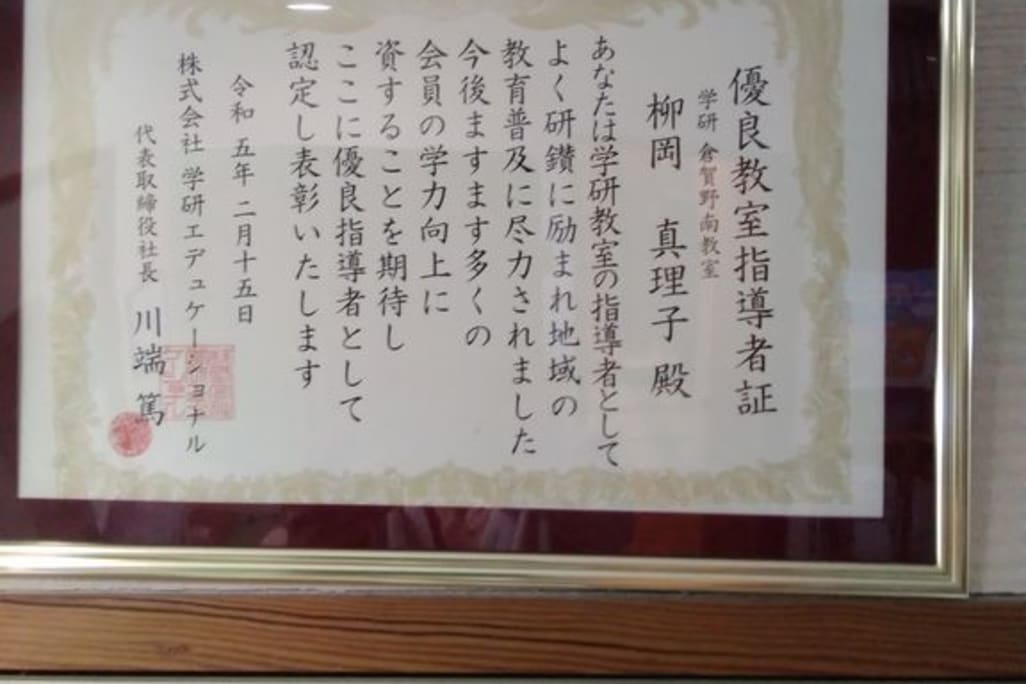 優良教室指導者証
学研 倉賀野南教室
柳岡 真理子 殿
あなたは学研教室の指導者として
よく研鑽に励まれ地域の
教育普及に尽力されました
今後ますます多くの
会員の学力向上に
資することを期待し
ここに優良指導者として
認定し表彰いたします
令和 五年 二月十五日
株式会社 学研エデュケーショナル
代表取締役社長 川端 篤